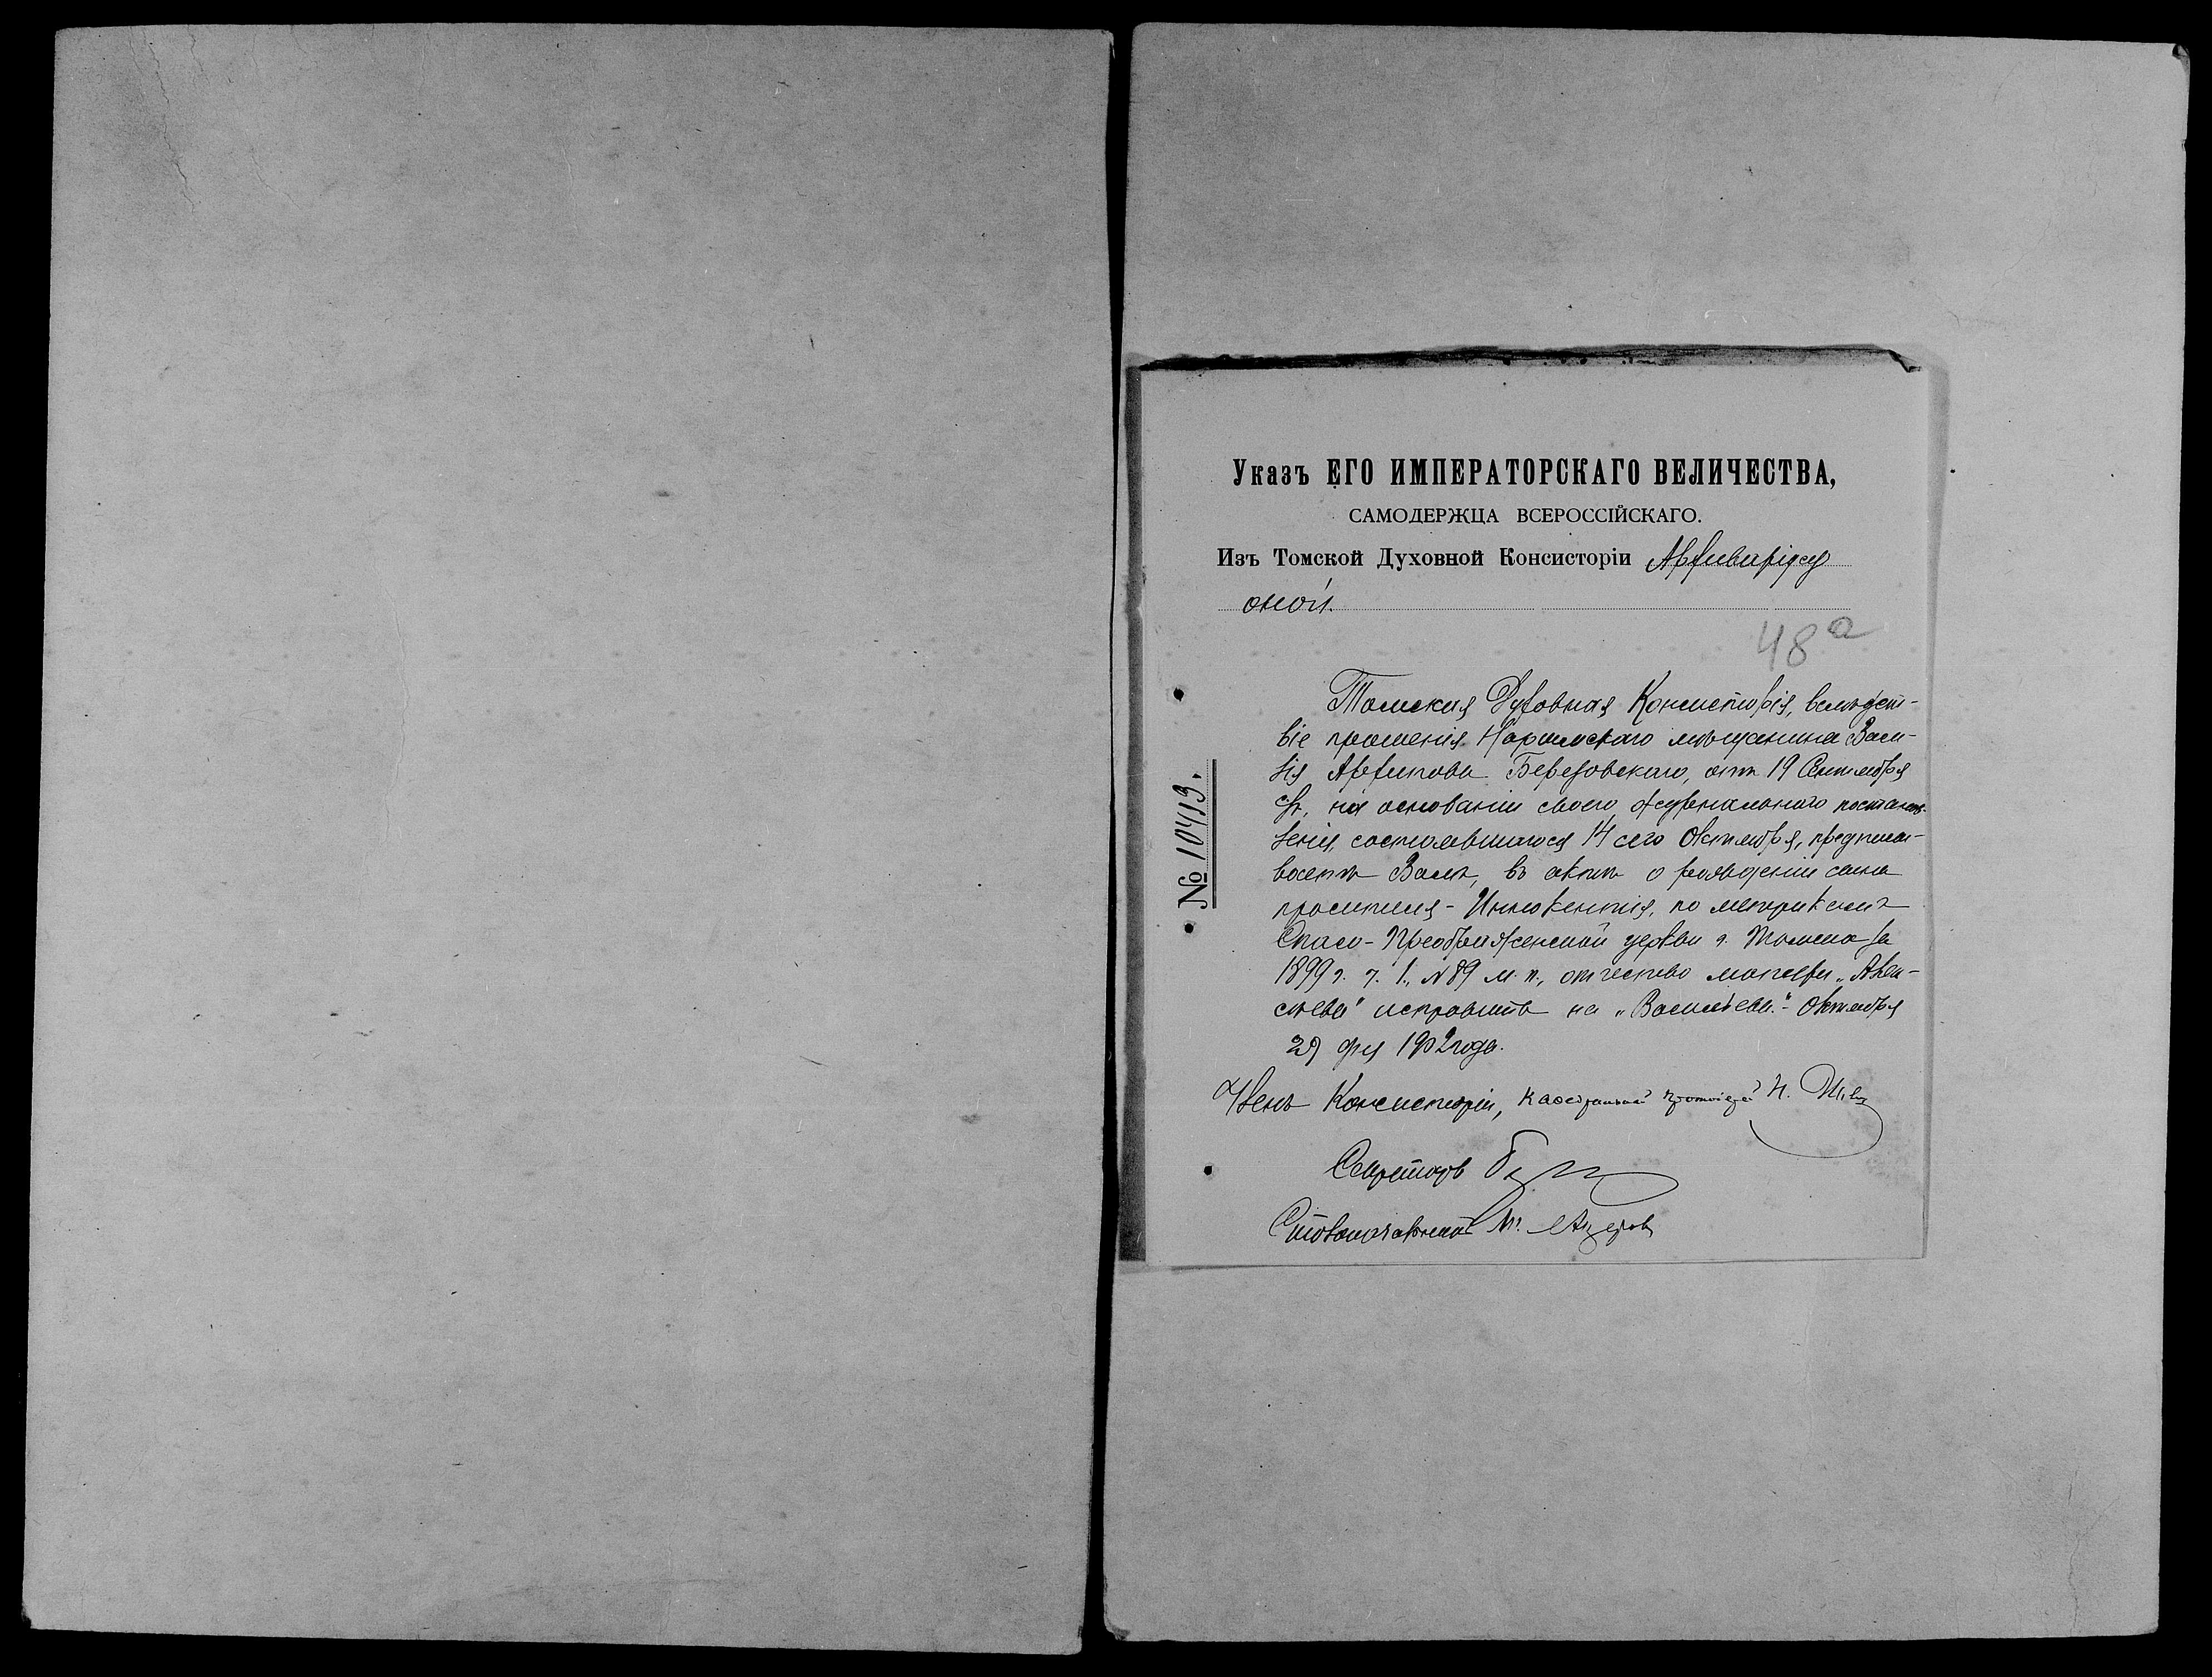 Указъ ЕГО ИМПЕРАТОРСКАГО ВЕЛИЧЕСТВА,
САМОДЕРЖЦА ВСЕРОССІЙСКАГО.
Изъ Томской Духовной Консисторіи Архиваріусу
оной.
48а
№ 10413.
Томская Духовная Консисторія, вслѣдст-
віе прошенія Нарымскаго мѣщанина Васи-
лія Архипова Березовскаго, отъ 19 Сентября
с/г, на основаніи своего журнальнаго постанов-
ленія, состоявшагося 14 сего Октября, предписы-
ваетъ Вамъ, въ актѣ о рожденіи сына
просителя - Иннокентія, по метрикамъ
Спасо-Преображенской церкви г. Томска за
1899 г. ч. 1., № 89 м. п., отчество матери
исправить на „Васильева“. - Октября
29 дня 1902 года.
Членъ Консисторіи, Каѳедральный Протоіерей Н.
Секретарь
Столоначальникъ